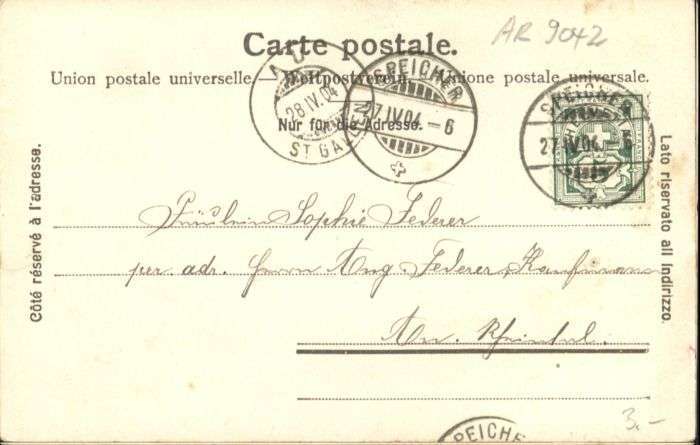 AR 9042
Carte postale.
Union postale universelle. — Weltpostverein. — Unione postale universale.
Nur für die Adresse.
AU
28 IV. 04
ST GALLEN
SPEICHER
27 IV 04 - 6
SPEICHER
27 IV 04 - 6
Côté réservé à l'adresse.
Lato riservato all indirizzo.
Fräulein Sophie Federer
per. adr. Herrn Aug. Federer Kaufmann
Au. Rheinthal.
SPEICHE
3.-